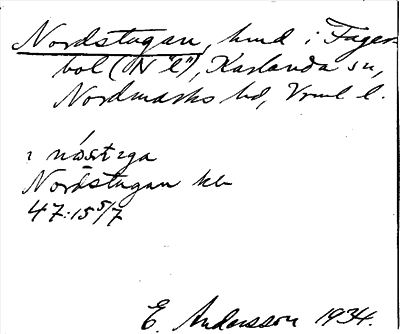 Nordstugan, hmd i Fager-
bol (N "l"), Karlanda sn,
Nordmarks hd, Vrml l.
i
Nordstugan kb
47:15 5/7
E. Andersson 1934.